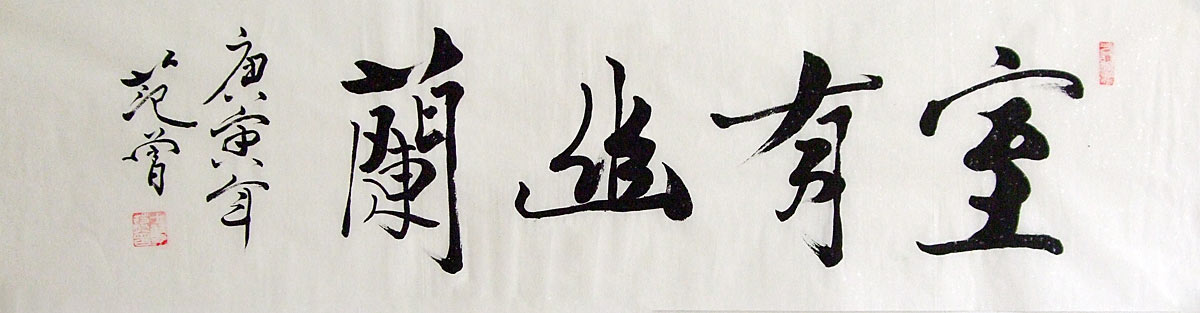 室有幽蘭
庚寅年
范曾